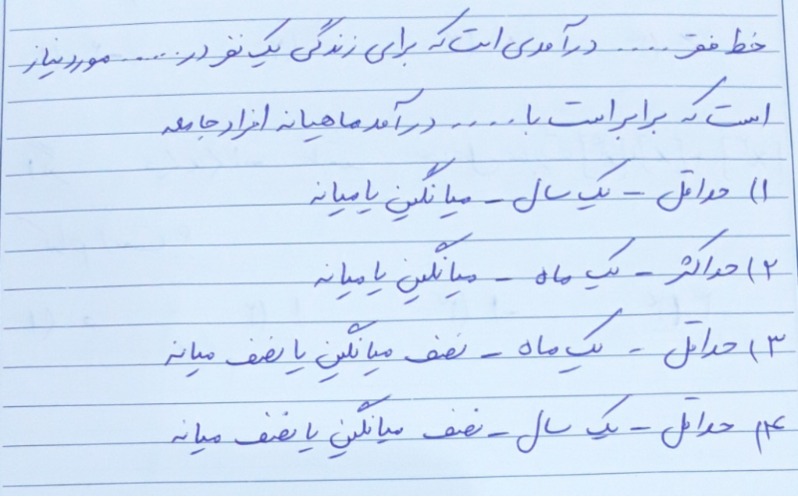 خط فقر .... درآمدی است که برای زندگی یک نفر در ..... مورد نیاز
است که برابر است با ..... درآمد ماهیانه افراد جامعه
۱) حداقل - یک سال - میانگین یا میانه
۲) حداکثر - یک ماه - میانگین یا میانه
۳) حداقل - یک ماه - نصف میانگین یا نصف میانه
۴) حداقل - یک سال - نصف میانگین یا نصف میانه